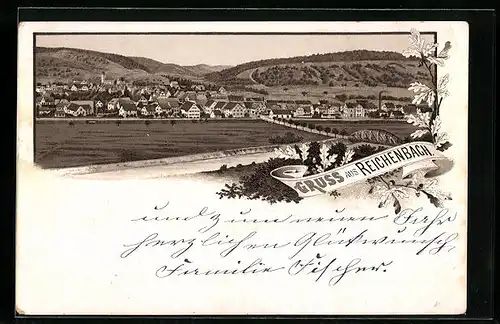 GRUSS AUS REICHENBACH.
und zum neuen Jahr
herzlichen Glückwunsch,
Familie Fischer.